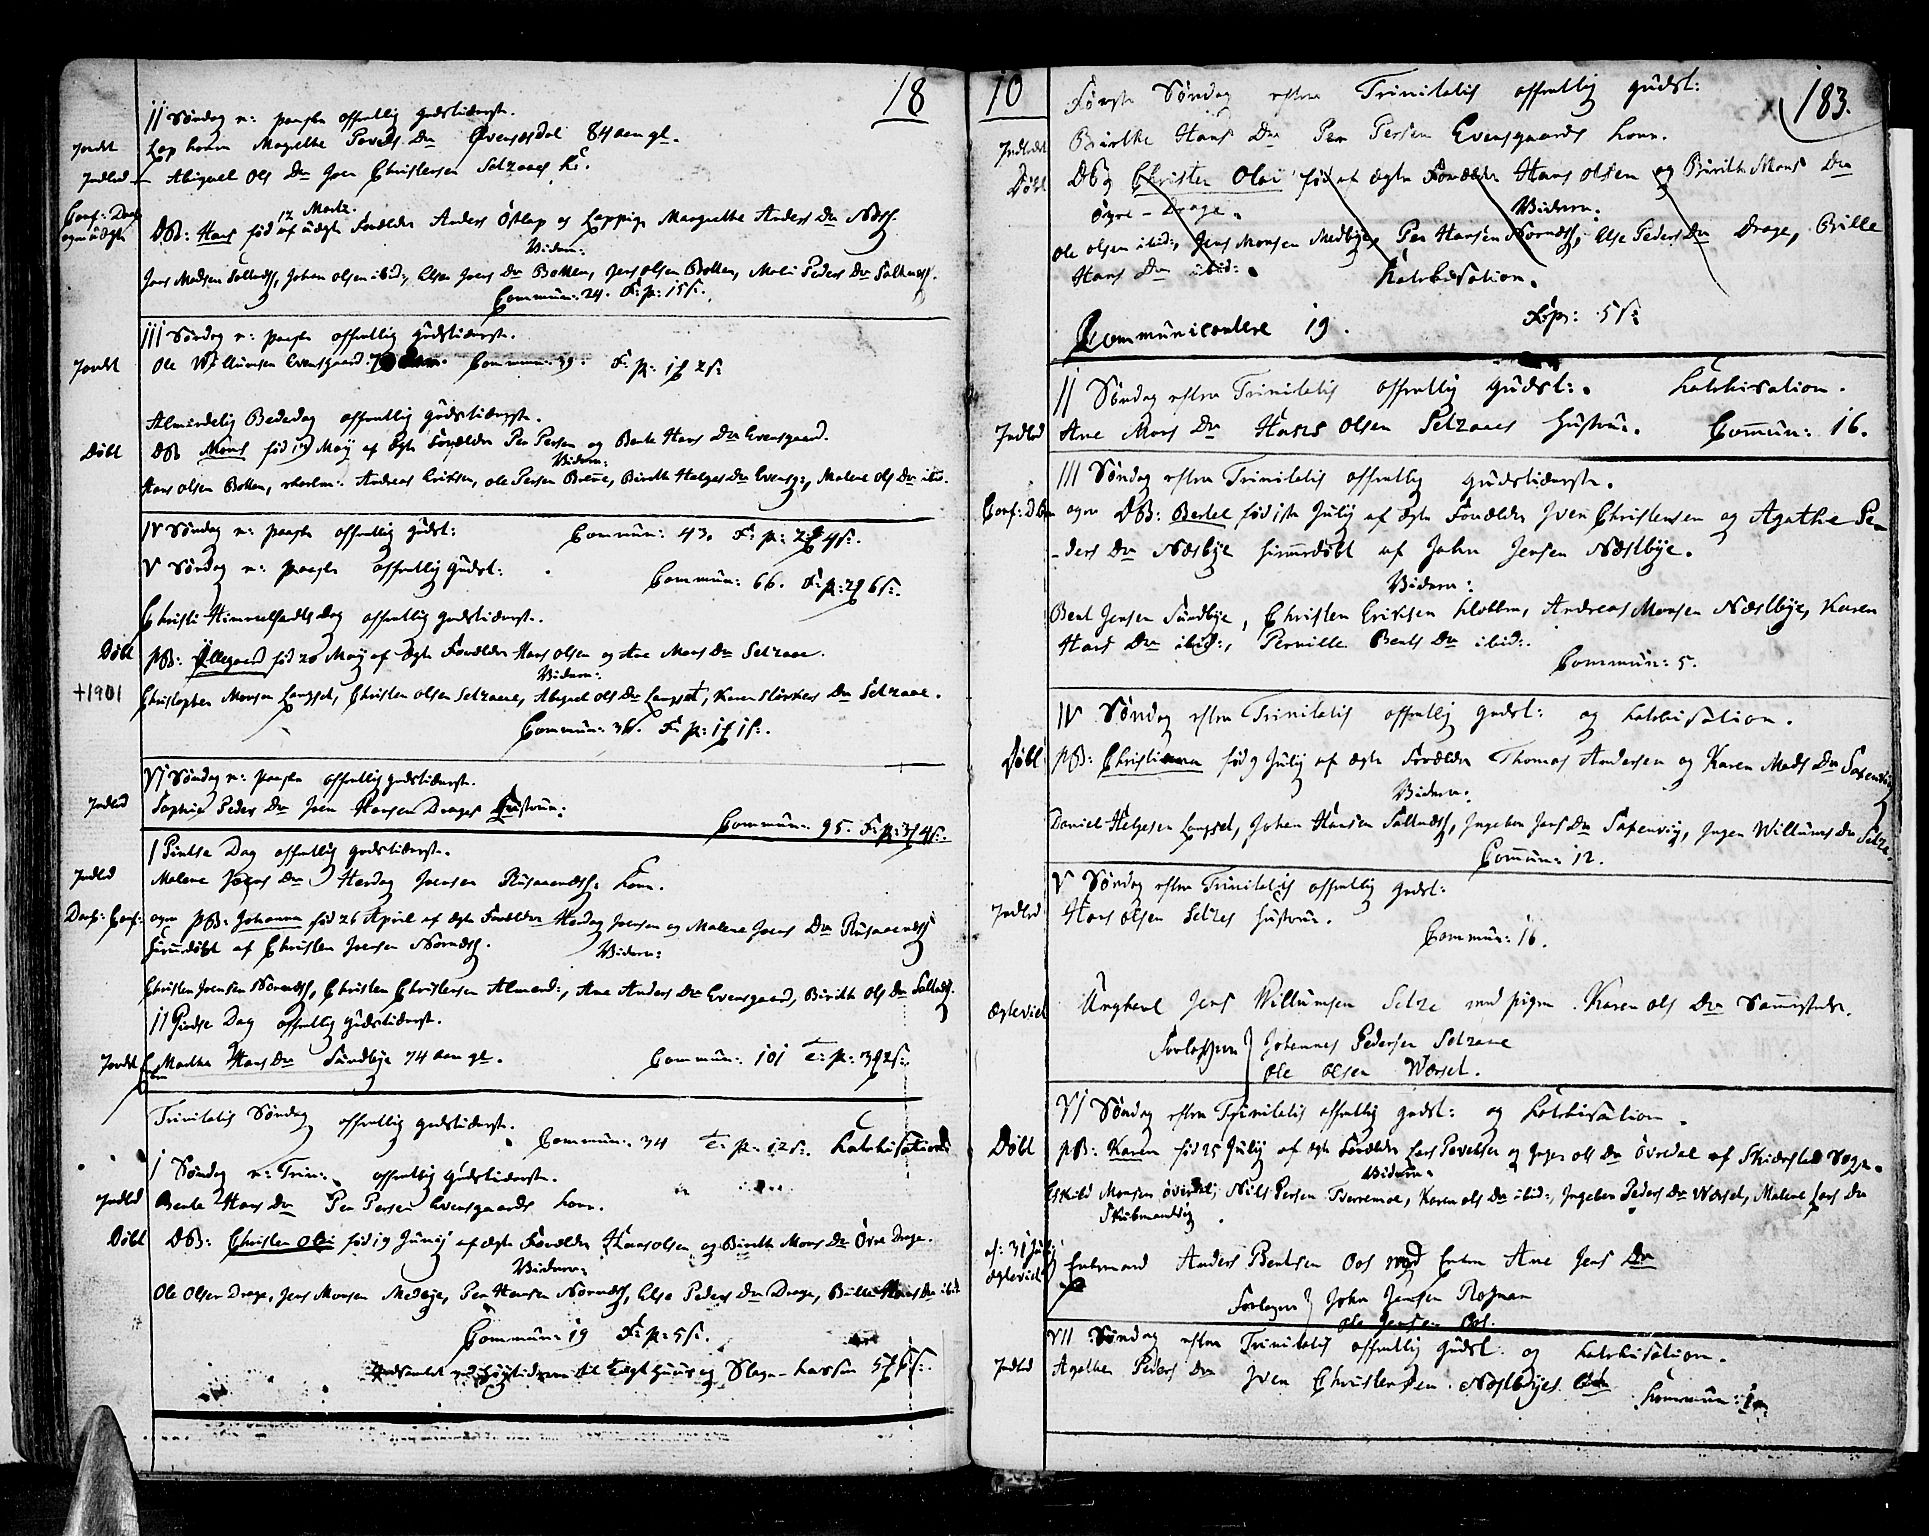 18
II Søndag n: paaske offentlig gudstieneste.
Jordet Lap kone Magrethe Povels Dr Øvensdal 84 aar gl.
Indled Abiguel Ols Dr Joen Christensen Selzaaes K:
Conf: Daab ogsaa uægte DB: Hans fød 12 Martz af uægte Forældre Anders Østlap og Lappige Margrethe Anders Dr Næss
Vidner:
Jens Madsen Saltnæss, Johan Olsen ibid:, Else Joens Dr Botten, Jens Olsen Botten, Mali Peders Dr Saltnæss.
Commun: 24. F: p: 15 s:
III Søndag n: paaske offentlig gudstieneste.
Jordet Ole Willumsen Evensgaard Commun: 39. F: p: 1 2 s:
Almindelig Bededag offentlig gudstieneste.
Døbt DB Mons fød 19 Maÿ af Ægte Forældre Per Persen og Berte Hans Dr Evensgaard.
Vidner:
Hans Olsen Botten, Andreas Eriksen, Ole Persen Breme, Birith Helges Dr Evensg:, Malene Ols Dr ibid.
IV Søndag n: paaske offentlig gudst: Commun: 43. F: p: 2 4 s:
V Søndag n: paaske offentlig gudst: Commun: 66. F: p: 2 6 s:
Christi Himmelfarts Dag offentlig gudstieneste.
Døbt PB: Ellegaard fød 20 Maÿ af Ægte Forældre Hans Olsen og Ane Mons Dr Selzaae.
Vidner:
+1901 Christopher Monsen Langset, Christen Olsen Selzaae, Abiguel Ols Dr Langset, Karen Størkers Dr Selzaae.
Commun: 36. F: p: 1 1 s:
VI Søndag n: paaske offentlig gudstieneste.
Indled Sophia Peders Dr Joen Hansen Drages Hustrue:
Commun: 95. F: p: 3 4 s:
I Pintse Dag offentlig gudstieneste.
Indled Malene Joens Dr Herdag Joensen Rusaaenæss: Kone.
Daab: Conf: ogsaa PB: Johanna fød 26 April af Ægte Forældre Herdag Joensen og Malene Joens Dr Rusaaenæss
hiemmedøbt af Christen Joensen Nornæss.
Vidner:
Christen Joensen Nornæss, Christen Christensen Almend:, Ane Anders Dr Evensgaard, Birith Ols Dr Saltnæss.
II Pindse Dag offentlig gudstieneste.
Jordet Marthe Hans Dr Sundbye 74 aar gl. Commun: 101 F: p: 3 2 s:
Trinitatis Søndag offentlig gudstieneste.
Commun: 34 F: p: 12 s: Katekisation
I Søndag n: Trin: offentlig gudstieneste.
Indled Berte Hans Dr Per Persen Evensgaards Kone.
Døbt DB: Christen Olai fød 19 Junij af Ægte Forældre Hans Olsen og Birith Mons Dr Øvre Drage.
Vidner:
Ole Olsen Drage, Jens Monsen Medbye, Per Hansen Nornæss, Else Peders Dr Drage, Brille Hans Dr ibid
Commun: 19 F: p: 5 s:
Indsamlet ved Høytiderne til Tugt Huus og Slave-Kassen 5
10
183.
Første Søndag efter Trinitatis offentlig gudst:
Indledt Birthe Hans Dr Per Persen Evensgaards Kone.
Døbt DB Christen Olai fød af Ægte Forældre Hans Olsen og Birith Mons Dr
Øvre-Drage.
Vidner:
Ole Olsen ibid:, Jens Monsen Medbye, Per Hansen Nornæss, Else Peders Dr Drage, Brille
Hans Dr ibid: Katekisation.
Communicantere 19. F: p: 5 s:
II Søndag efter Trinitatis offentlig gudst: Katekisation.
Indled Ane Mons Dr Hans Olsen Selzaaes Hustrue. Commun: 16.
III Søndag efter Trinitatis offentlig gudstieneste.
Conf: Daab ogsaa DB: Bertel fød 1ste Julij af Ægte Forældre Iven Christensen og Agathe Pe-
-ders Dr Næsbye hiemmedøbt af John Jensen Næstbye.
Vidner:
Bent Jensen Sundbye, Christen Eriksen Klobben, Andreas Monsen Næstbye, Karen
Hans Dr ibid:, Pernille Bents Dr ibid:
Commun: 5.
IV Søndag efter Trinitatis offentlig gudst: og Katekisation.
Døbt PB: Christianna fød 9 Julij af Ægte Forældre Thomas Andersen og Karen Mads Dr Saxenvig
Vidner:
Daniel Helgesen Langset, Johan Hansen Saltnæss, Ingebor Jens Dr Saxenvig, Inger Willums Dr Selze.
Commun: 12.
V Søndag efter Trinitatis offentlig gudst:
Indled Hans Olsen Selzes Hustrue.
Commun: 16.
Ægteviet Ungkarl Jens Willumsen Selze med pigen Karen Ols Dr Sammestæds.
Forlovere Johannes Pedersen Selzaae
Ole Olsen Worset.
VI Søndag efter Trinitatis offentlig gudst: og Katekisation.
Døbt PB: Karen fød 25 Julij af Ægte Forældre Lars Povelsen og Inger Ols Dr Øvredal af Skierstad Sogn.
Vidner:
Eskild Monsen Øvredal, Nils Persen Tverremoe, Karen Ols Dr ibid:, Ingebor Peders Dr Worset, Malene Lars Dr
Skibmandvig
31 Julij Ægteviet Enkemand Anders Bentsen Oos med Enken Ane Jens Dr
Forlovere John Jensen Rognan
Ole Jensen Oos.
VII Søndag efter Trinitatis offentlig gudst: og Katekisation.
Indled Agathe Peders Dr Iven Christensen Næstbyes Commun: